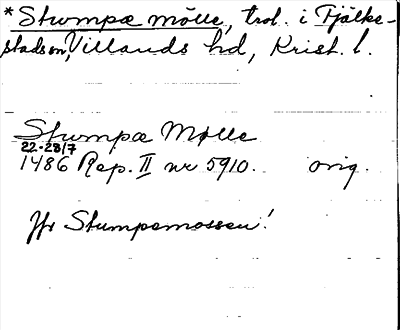 *Stumpæ mölle, trol. i Fjälke-
stads sn, Villands hd, Krist. l.
Stumpæ Mølle
22-28/7
1486 Rep. II nr 5910. orig.
Jfr Stumpamossen!